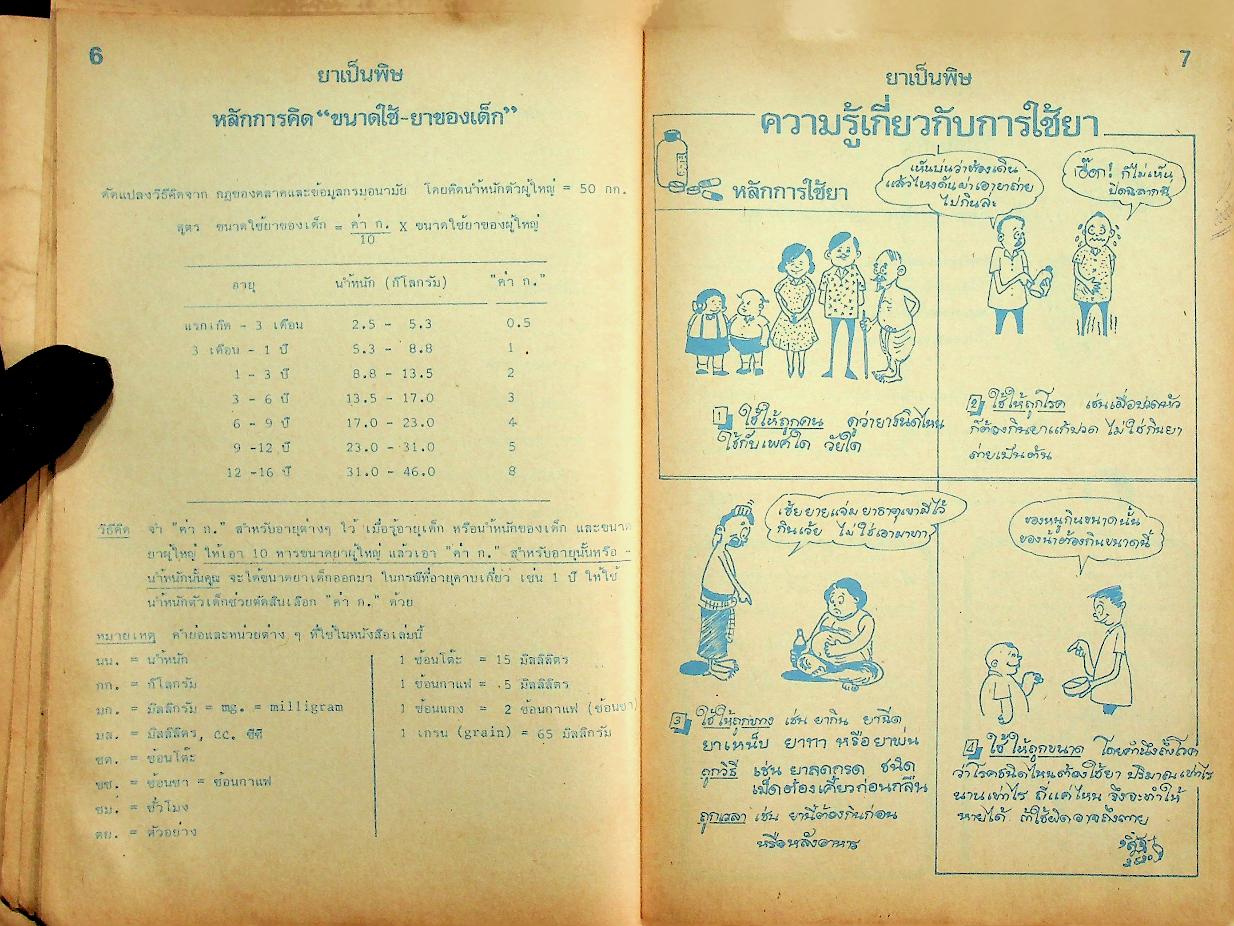 6
ยาเป็นพิษ
หลักการคิด“ขนาดใช้-ยาของเด็ก”
ดัดแปลงวิธีคิดจาก กฎของคลาคและข้อมูลกรมอนามัย โดยคิดน้ำหนักตัวผู้ใหญ่ = 50 กก.
สูตร ขนาดใช้ยาของเด็ก = ค่า ก. / 10 X ขนาดใช้ยาของผู้ใหญ่
อายุ น้ำหนัก (กิโลกรัม) "ค่า ก."
แรกเกิด - 3 เดือน 2.5 - 5.3 0.5
3 เดือน - 1 ปี 5.3 - 8.8 1
1 - 3 ปี 8.8 - 13.5 2
3 - 6 ปี 13.5 - 17.0 3
6 - 9 ปี 17.0 - 23.0 4
9 -12 ปี 23.0 - 31.0 5
12 -16 ปี 31.0 - 46.0 8
วิธีคิด จำ "ค่า ก." สำหรับอายุต่างๆ ไว้ เมื่อรู้อายุเด็ก หรือน้ำหนักของเด็ก และขนาด
ยาผู้ใหญ่ ให้เอา 10 หารขนาดยาผู้ใหญ่ แล้วเอา "ค่า ก." สำหรับอายุนั้นหรือ -
น้ำหนักนั้นคูณ จะได้ขนาดยาเด็กออกมา ในกรณีที่อายุคาบเกี่ยว เช่น 1 ปี ให้ใช้
น้ำหนักตัวเด็กช่วยตัดสินเลือก "ค่า ก." ด้วย
หมายเหตุ คำย่อและหน่วยต่าง ๆ ที่ใช้ในหนังสือเล่มนี้
นน. = น้ำหนัก
กก. = กิโลกรัม
มก. = มิลลิกรัม = mg. = milligram
มล. = มิลลิลิตร, cc. ซีซี
ชต. = ช้อนโต๊ะ
ชช. = ช้อนชา = ช้อนกาแฟ
ชม. = ชั่วโมง
ตย. = ตัวอย่าง
1 ช้อนโต๊ะ = 15 มิลลิลิตร
1 ช้อนกาแฟ = 5 มิลลิลิตร
1 ช้อนแกง = 2 ช้อนกาแฟ (ช้อนชา)
1 เกรน (grain) = 65 มิลลิกรัม
7
ยาเป็นพิษ
ความรู้เกี่ยวกับการใช้ยา
หลักการใช้ยา
เห็นบ่นว่าท้องเดิน
แล้วไหงดันผ่าเอายาถ่าย
ไปกินล่ะ
เอื๊อก! ก็ไม่เห็น
ปิดฉลากนี่
1 ใช้ให้ถูกคน ดูว่ายาชนิดไหน
ใช้กับเพศใด วัยใด
2 ใช้ให้ถูกโรค เช่นเมื่อปวดหัว
ก็ต้องกินยาแก้ปวด ไม่ใช่กินยา
ถ่ายเป็นต้น
เฮ้ยยายแจ่ม ยาธาตุเขามีไว้
กินเว้ย ไม่ใช่เอามาทา
ของหนูกินขนาดนั้น
ของน้าต้องกินขนาดนี้
3 ใช้ให้ถูกทาง เช่น ยากิน ยาฉีด
ยาเหน็บ ยาทา หรือยาพ่น
ถูกวิธี เช่น ยาลดกรด ชนิด
เม็ดต้องเคี้ยวก่อนกลืน
ถูกเวลา เช่น ยานี้ต้องกินก่อน
หรือหลังอาหาร
4 ใช้ให้ถูกขนาด โดยคำนึงถึง
ว่าโรคชนิดไหนต้องใช้ยา ปริมาณเท่าไร
นานเท่าไร ถี่แค่ไหน จึงจะทำให้
หายได้ ถ้าใช้ผิดอาจถึงตาย